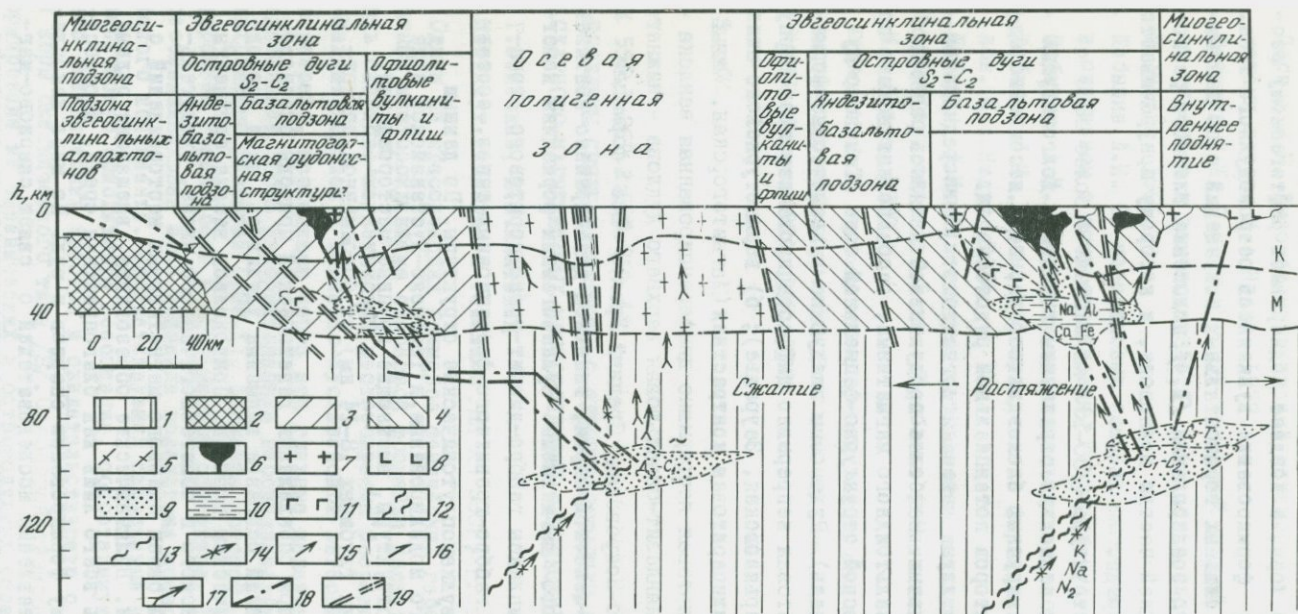 Миогеоси-
нклиналь-
ная
подзона
Подзона
эвгеосинк-
линальных
аллохто-
нов
Эвгеосинклинальная
зона
Островные дуги
S₂-C₂
Анде-
зито-
база-
льто-
вая
подзо-
на
Базальтовая
подзона
Магнитогор-
ская рудонос-
ная
структура
Офиоли-
товые
вулкани-
ты и
флиш
Осевая
полигенная
зона
Эвгеосинклинальная
зона
Офи-
оли-
то-
вые
вул-
кани-
ты
и
флиш
Островные дуги
S₂-C₂
Андезито-
базальто-
вая
подзона
Базальтовая
подзона
Миогео-
синкли-
нальная
зона
Внут-
реннее
подня-
тие
h, км
0
40
80
120
0 20 40км
К
М
K Na Al
Ca Fe
Сжатие
Растяжение
C₁-C₂
K
Na
N₂
1
2
3
4
5
6
7
8
9
10
11
12
13
14
15
16
17
18
19